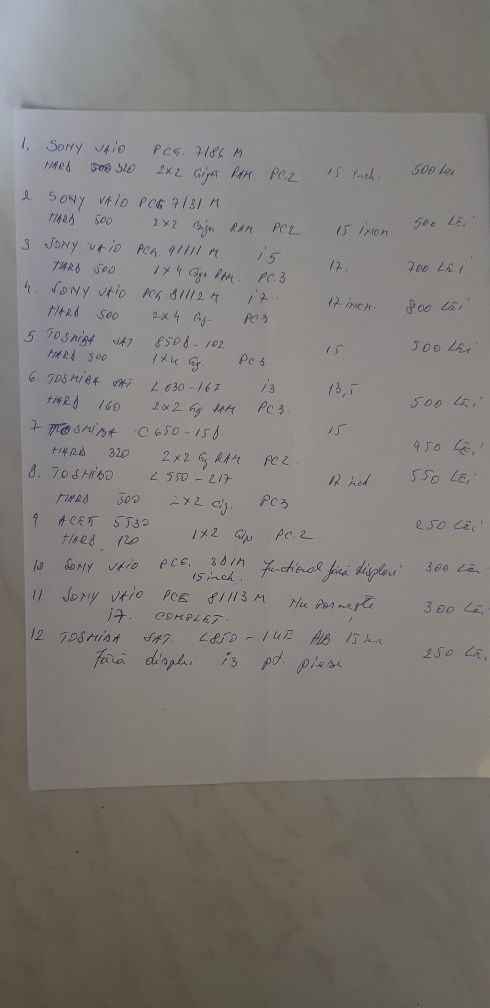 1. SONY VAIO PCG. 7186 M
HARD 320 2x2 Giga RAM PC.2 15 inch. 500 Lei
2 SONY VAIO PCG 7131 M
HARD 500 2x2 Giga RAM PC2 15 inch. 500 LEi
3 SONY VAIO PCG. 91111 M i5
HARD 500 1x4 Giga RAM. PC.3 17. 700 LEi
4. SONY VAIO PCG. 81112 M i7.
HARD 500 2x4 Gig. PC3 17 inch. 800 LEi
5. TOSHIBA SAT. 102 15 500 LEi
HARD 500 1x4 Gg. PC3.
6 TOSHIBA SAT L630-167 i3 13,5
HARD 160 2x2 Gg RAM PC3. 500 LEi
7 TOSHIBA C650- 15
HARD 320 2x2 Gg RAM PC2. 450 LEi
8. TOSHIBO L550-217 17 inch. 550 LEi
HARD 500 2x2 Gig. PC3
9 ACER 5530 250 LEi
HARD 120 1x2 Gig PC.2
10 SONY VAIO PCG. functional fără displai 300 LEi
15 inch.
11 SONY VAIO PCG 81113 M Nu pornește 300 LEi
i7. COMPLET.
12 TOSHIBA SAT. L850-1UE ALB 15 inc
Fără displei i3 pt. piese 250 LEi